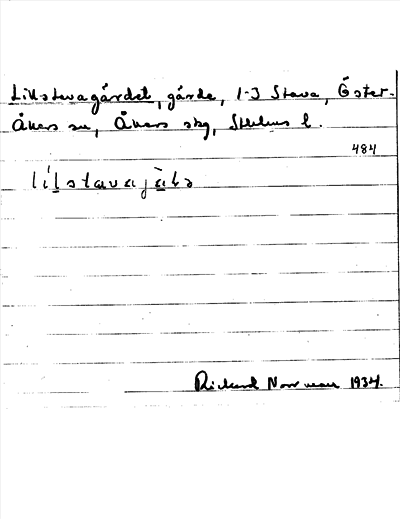 Lillstavagärdet, gärde, 1-3 Stava, Öster-
Åkers sn, Åkers skg, Sthlms l.
484
lílstavajà̱ḷə
Richard Norrman 1934.